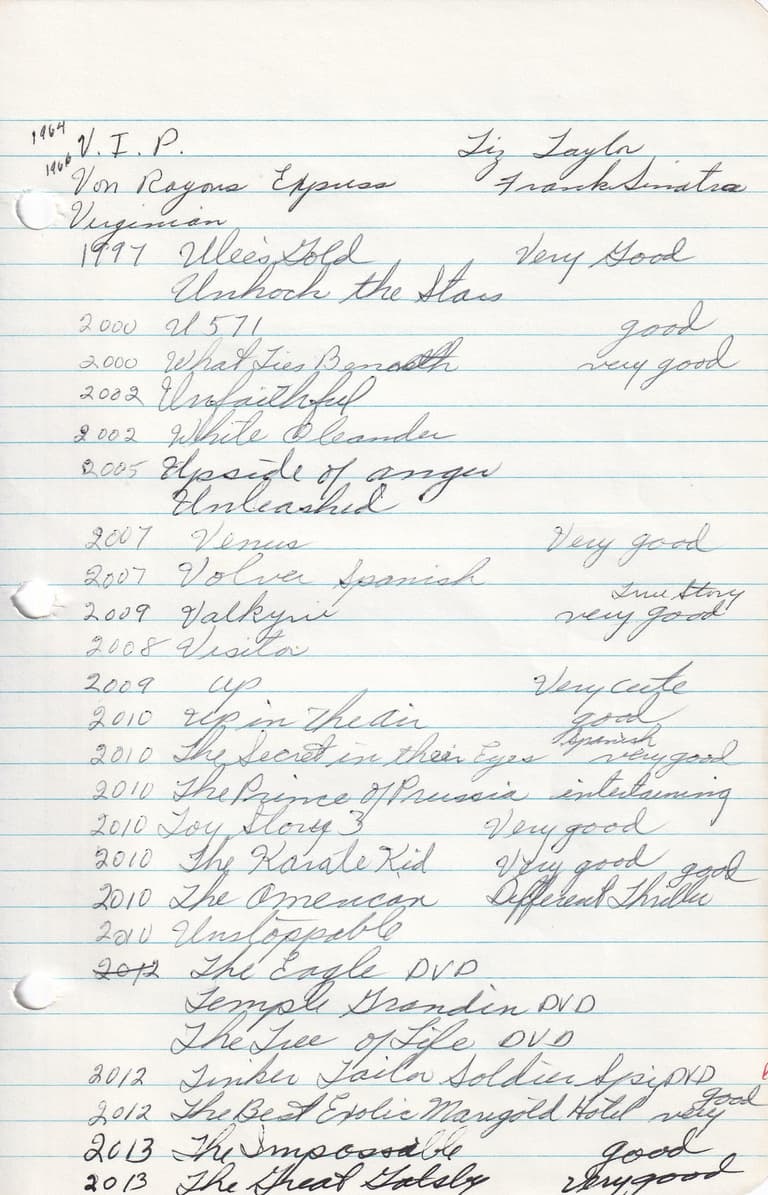 1964 V. I. P. Liz Taylor
1966 Von Rayons Express Frank Sinatra
Virginian
1997 Ulee's Gold Very Good
Unhook the Stars
2000 U 571 good
2000 What Lies Beneath very good
2002 Unfaithful
2002 White Oleander
2005 Upside of anger
Unleashed
2007 Venus Very good
2007 Volver Spanish
True Story
2009 Valkyrie very good
2008 Visitor
2009 up Very cute
2010 up in the air good
Spanish
2010 The Secret in their Eyes very good
2010 The Prince of Prussia entertaining
2010 Toy Story 3 Very good
2010 The Karate Kid Very good good
2010 The American Different Thriller
2010 Unstoppable
2012 The Eagle DVD
Temple Grandin DVD
The Tree of Life DVD
2012 Tinker Tailor Soldier Spy DVD
good
2012 The Best Exotic Marigold Hotel very
2013 The Impossible good
2013 The Great Gatsby very good